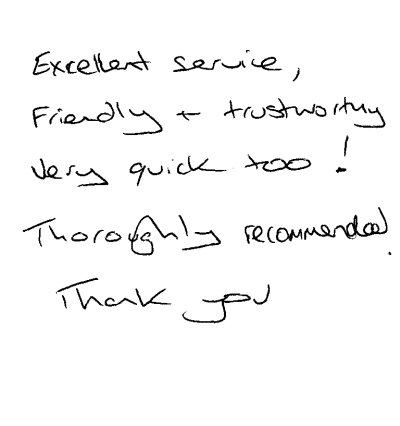 Excellent service,
Friendly + trustworthy
Very quick too!
Thoroughly recommended.
Thank you